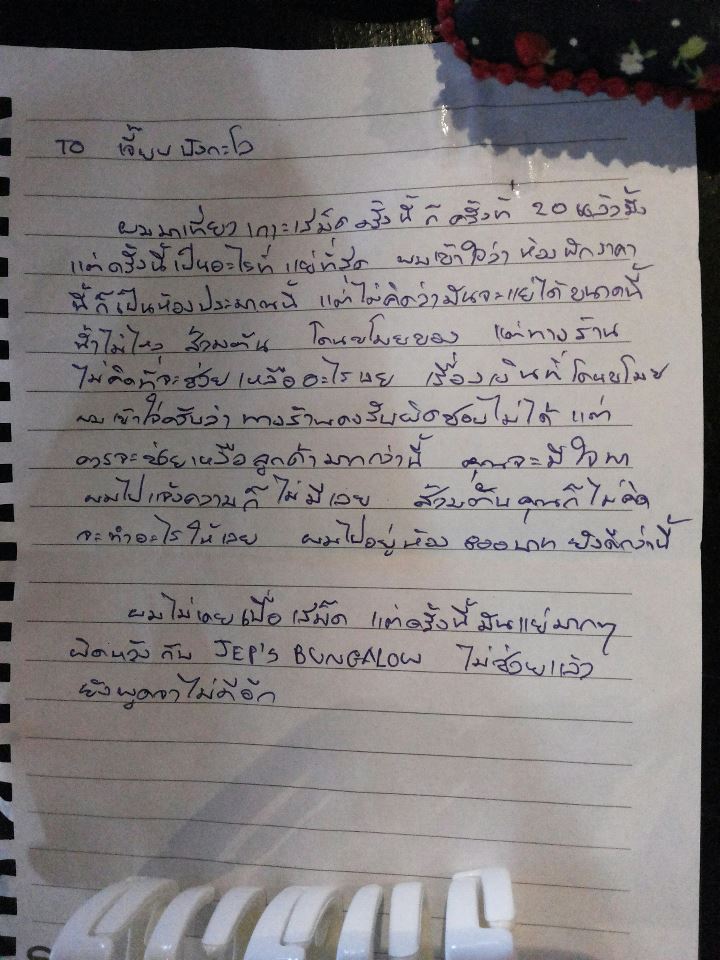 TO เจี๊ยบ บังกะโล
ผมมาเที่ยว เกาะเสม็ด ครั้งนี้ ก็ ครั้งที่ 20 แล้วมั้ง
แต่ครั้งนี้เป็นอะไรที่ แย่ที่สุด ผมเข้าใจว่า ห้องพักราคา
นี้ก็เป็นห้องประมาณนี้ แต่ไม่คิดว่ามันจะแย่ได้ขนาดนี้
น้ำไม่ไหล ส้วมตัน โดนขโมยของ แต่ทางร้าน
ไม่คิดที่จะช่วยเหลืออะไรเลย เรื่องเงินที่โดนขโมย
ผมเข้าใจครับว่า ทางร้านคงรับผิดชอบไม่ได้ แต่
ควรจะช่วยเหลือลูกค้ามากกว่านี้ คุณจะมีใจพา
ผมไปแจ้งความก็ไม่มีเลย ส้วมตันคุณก็ไม่คิด
จะทำอะไรให้เลย ผมไปอยู่ห้อง ๓๐๐บาท ยังดีกว่านี้
ผมไม่เคยเบื่อเสม็ด แต่ครั้งนี้มันแย่มากๆ
ผิดหวังกับ JEP'S BUNGALOW ไม่ช่วยแล้ว
ยังพูดจาไม่ดีอีก